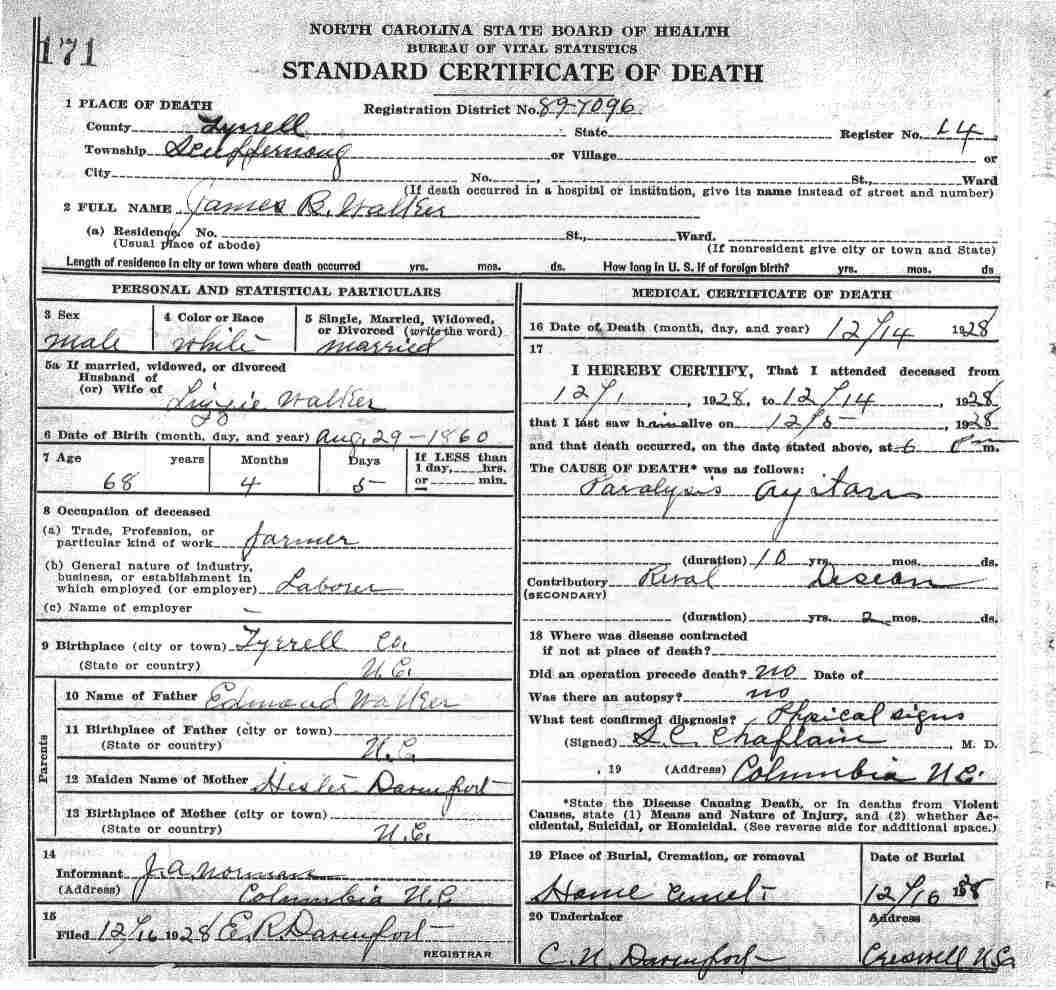 171
NORTH CAROLINA STATE BOARD OF HEALTH
BUREAU OF VITAL STATISTICS
STANDARD CERTIFICATE OF DEATH
1 PLACE OF DEATH
Registration District No. 89-7096
County Tyrrell State Register No. 14
Township Scuppernong or Village or
City No. , St., Ward
(If death occurred in a hospital or institution, give its name instead of street and number)
2 FULL NAME James B. Walker
(a) Residence. No. St., Ward.
(Usual place of abode) (If nonresident give city or town and State)
Length of residence in city or town where death occurred yrs. mos. ds. How long in U. S. if of foreign birth? yrs. mos. ds
PERSONAL AND STATISTICAL PARTICULARS
3 Sex
male
4 Color or Race
white
5 Single, Married, Widowed,
or Divorced (write the word)
married
5a If married, widowed, or divorced
Husband of
(or) Wife of Lizzie Walker
6 Date of Birth (month, day, and year) Aug, 29-1860
7 Age years Months Days If LESS than
1 day, hrs.
or min.
68 4 5
8 Occupation of deceased
(a) Trade, Profession, or
particular kind of work farmer
(b) General nature of industry,
business, or establishment in
which employed (or employer) Laborer
(c) Name of employer –
9 Birthplace (city or town) Tyrrell Co.
(State or country) N.C.
Parents
10 Name of Father Edmond Walker
11 Birthplace of Father (city or town)
(State or country) N.C.
12 Maiden Name of Mother Hester Davenport
13 Birthplace of Mother (city or town)
(State or country) N.C.
14
Informant J.A. Norman
(Address) Columbia N.C
15
Filed 12/16 1928 E.R. Davenport
REGISTRAR
MEDICAL CERTIFICATE OF DEATH
16 Date of Death (month, day, and year) 12/14 1928
17
I HEREBY CERTIFY, That I attended deceased from
12/1, 1928, to 12/14, 1928
that I last saw him alive on 12/5-, 1928
and that death occurred, on the date stated above, at 6 Pm m.
The CAUSE OF DEATH* was as follows:
Paralysis Agitans
(duration) 10 yrs. mos. ds.
Contributory
(SECONDARY)
(duration) yrs. 2 mos. ds.
18 Where was disease contracted
if not at place of death?
Did an operation precede death? no Date of
Was there an autopsy? no
What test confirmed diagnosis? Phsical signs
(Signed) S.C. Chaplain, M. D.
, 19 (Address) Columbia N.C.
*State the Disease Causing Death, or in deaths from Violent
Causes, state (1) Means and Nature of Injury, and (2) whether Ac-
cidental, Suicidal, or Homicidal. (See reverse side for additional space.)
19 Place of Burial, Cremation, or removal
Home Cmet.
Date of Burial
12/16 1928
20 Undertaker
C.N. Davenport
Address
Creswell N.C.